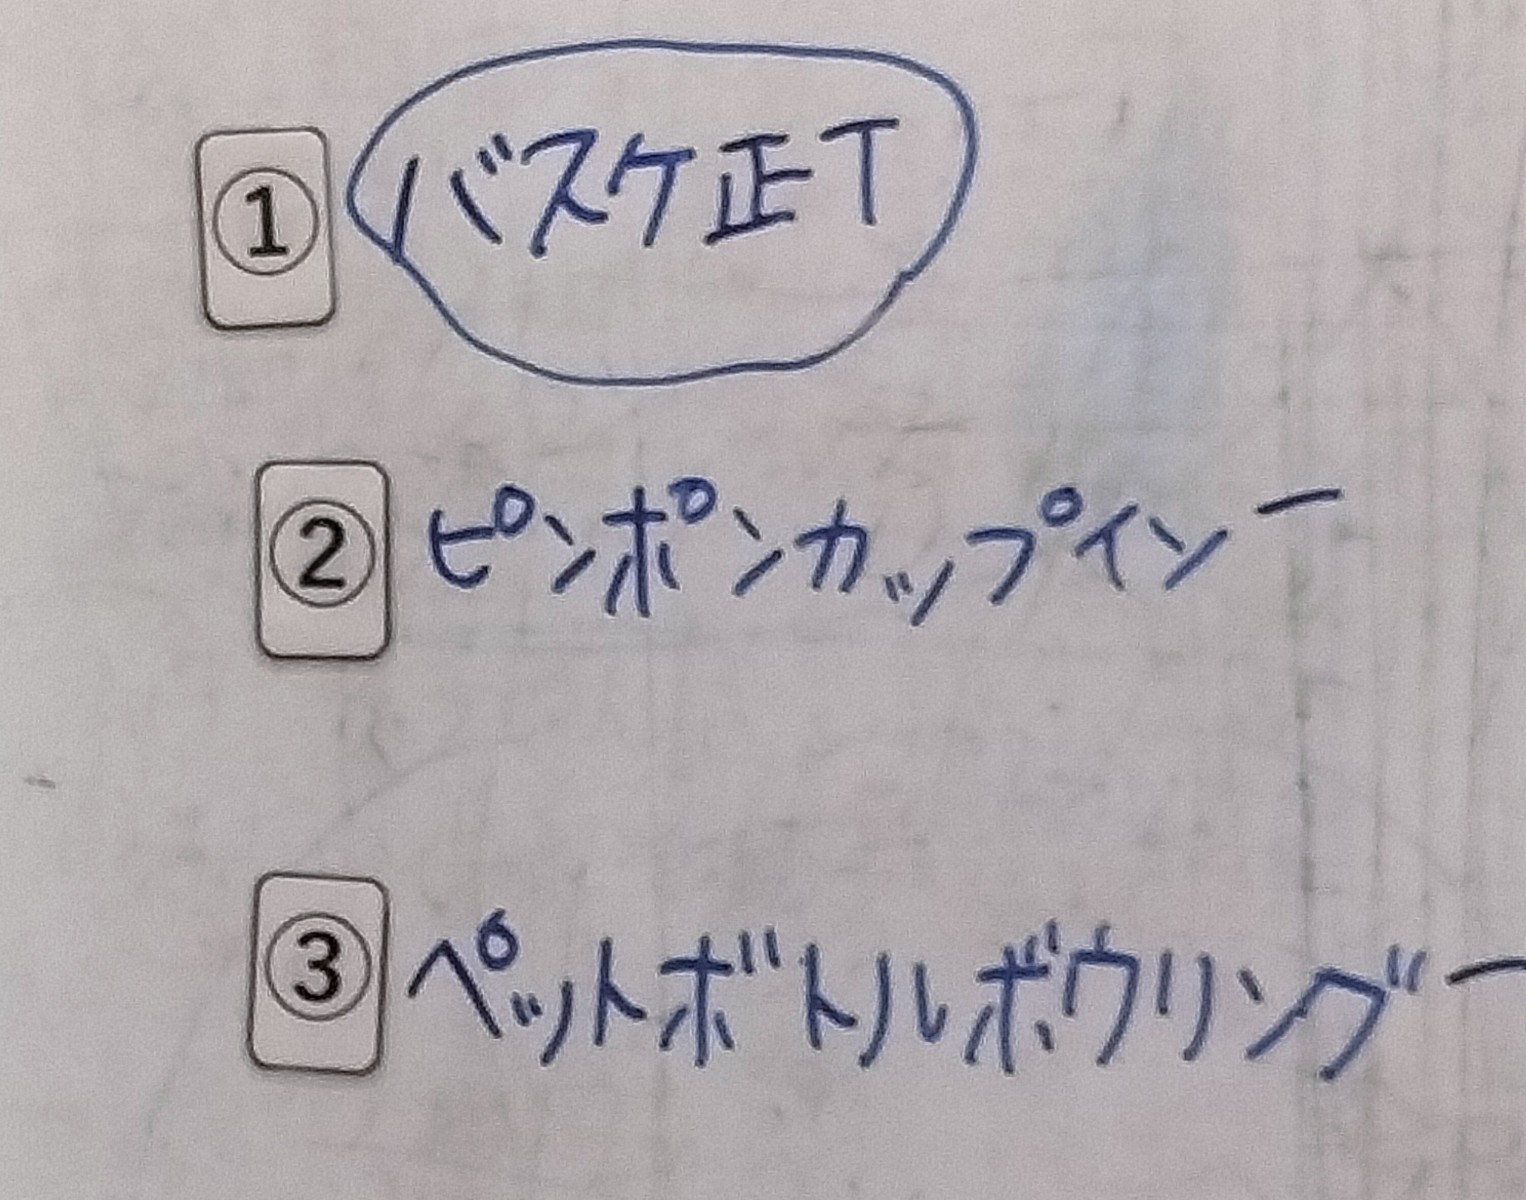 ① バスケ正T
② ピンポンカップイン ー
③ ペットボトルボウリング ー